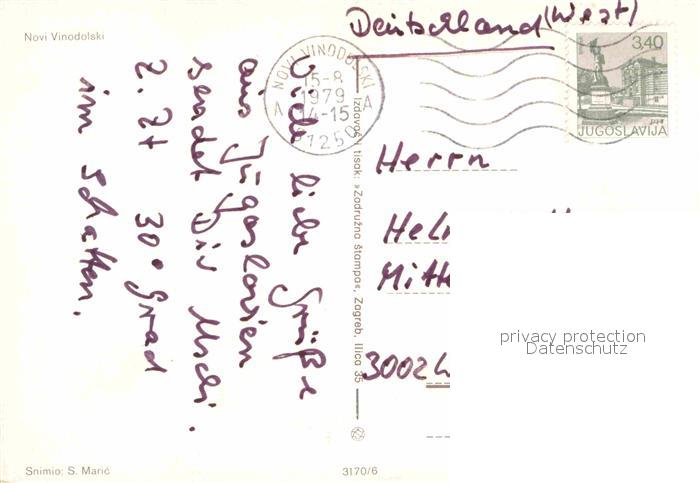 Novi Vinodolski
Deutschland (West)
NOVI VINODOLSKI
15-8
1979
14-15
A A
51250
3,40
JUGOSLAVIJA
Viele liebe Grüße
aus Jugoslavien
sendet Dir Uschi.
z. Zt 30° Grad
im Schatten.
Izdavač i tisak: »Zadružna štampa«, Zagreb, Ilica 35
Herrn
Hel
Mitt
3002
privacy protection
Datenschutz
Snimio: S. Marić
3170/6